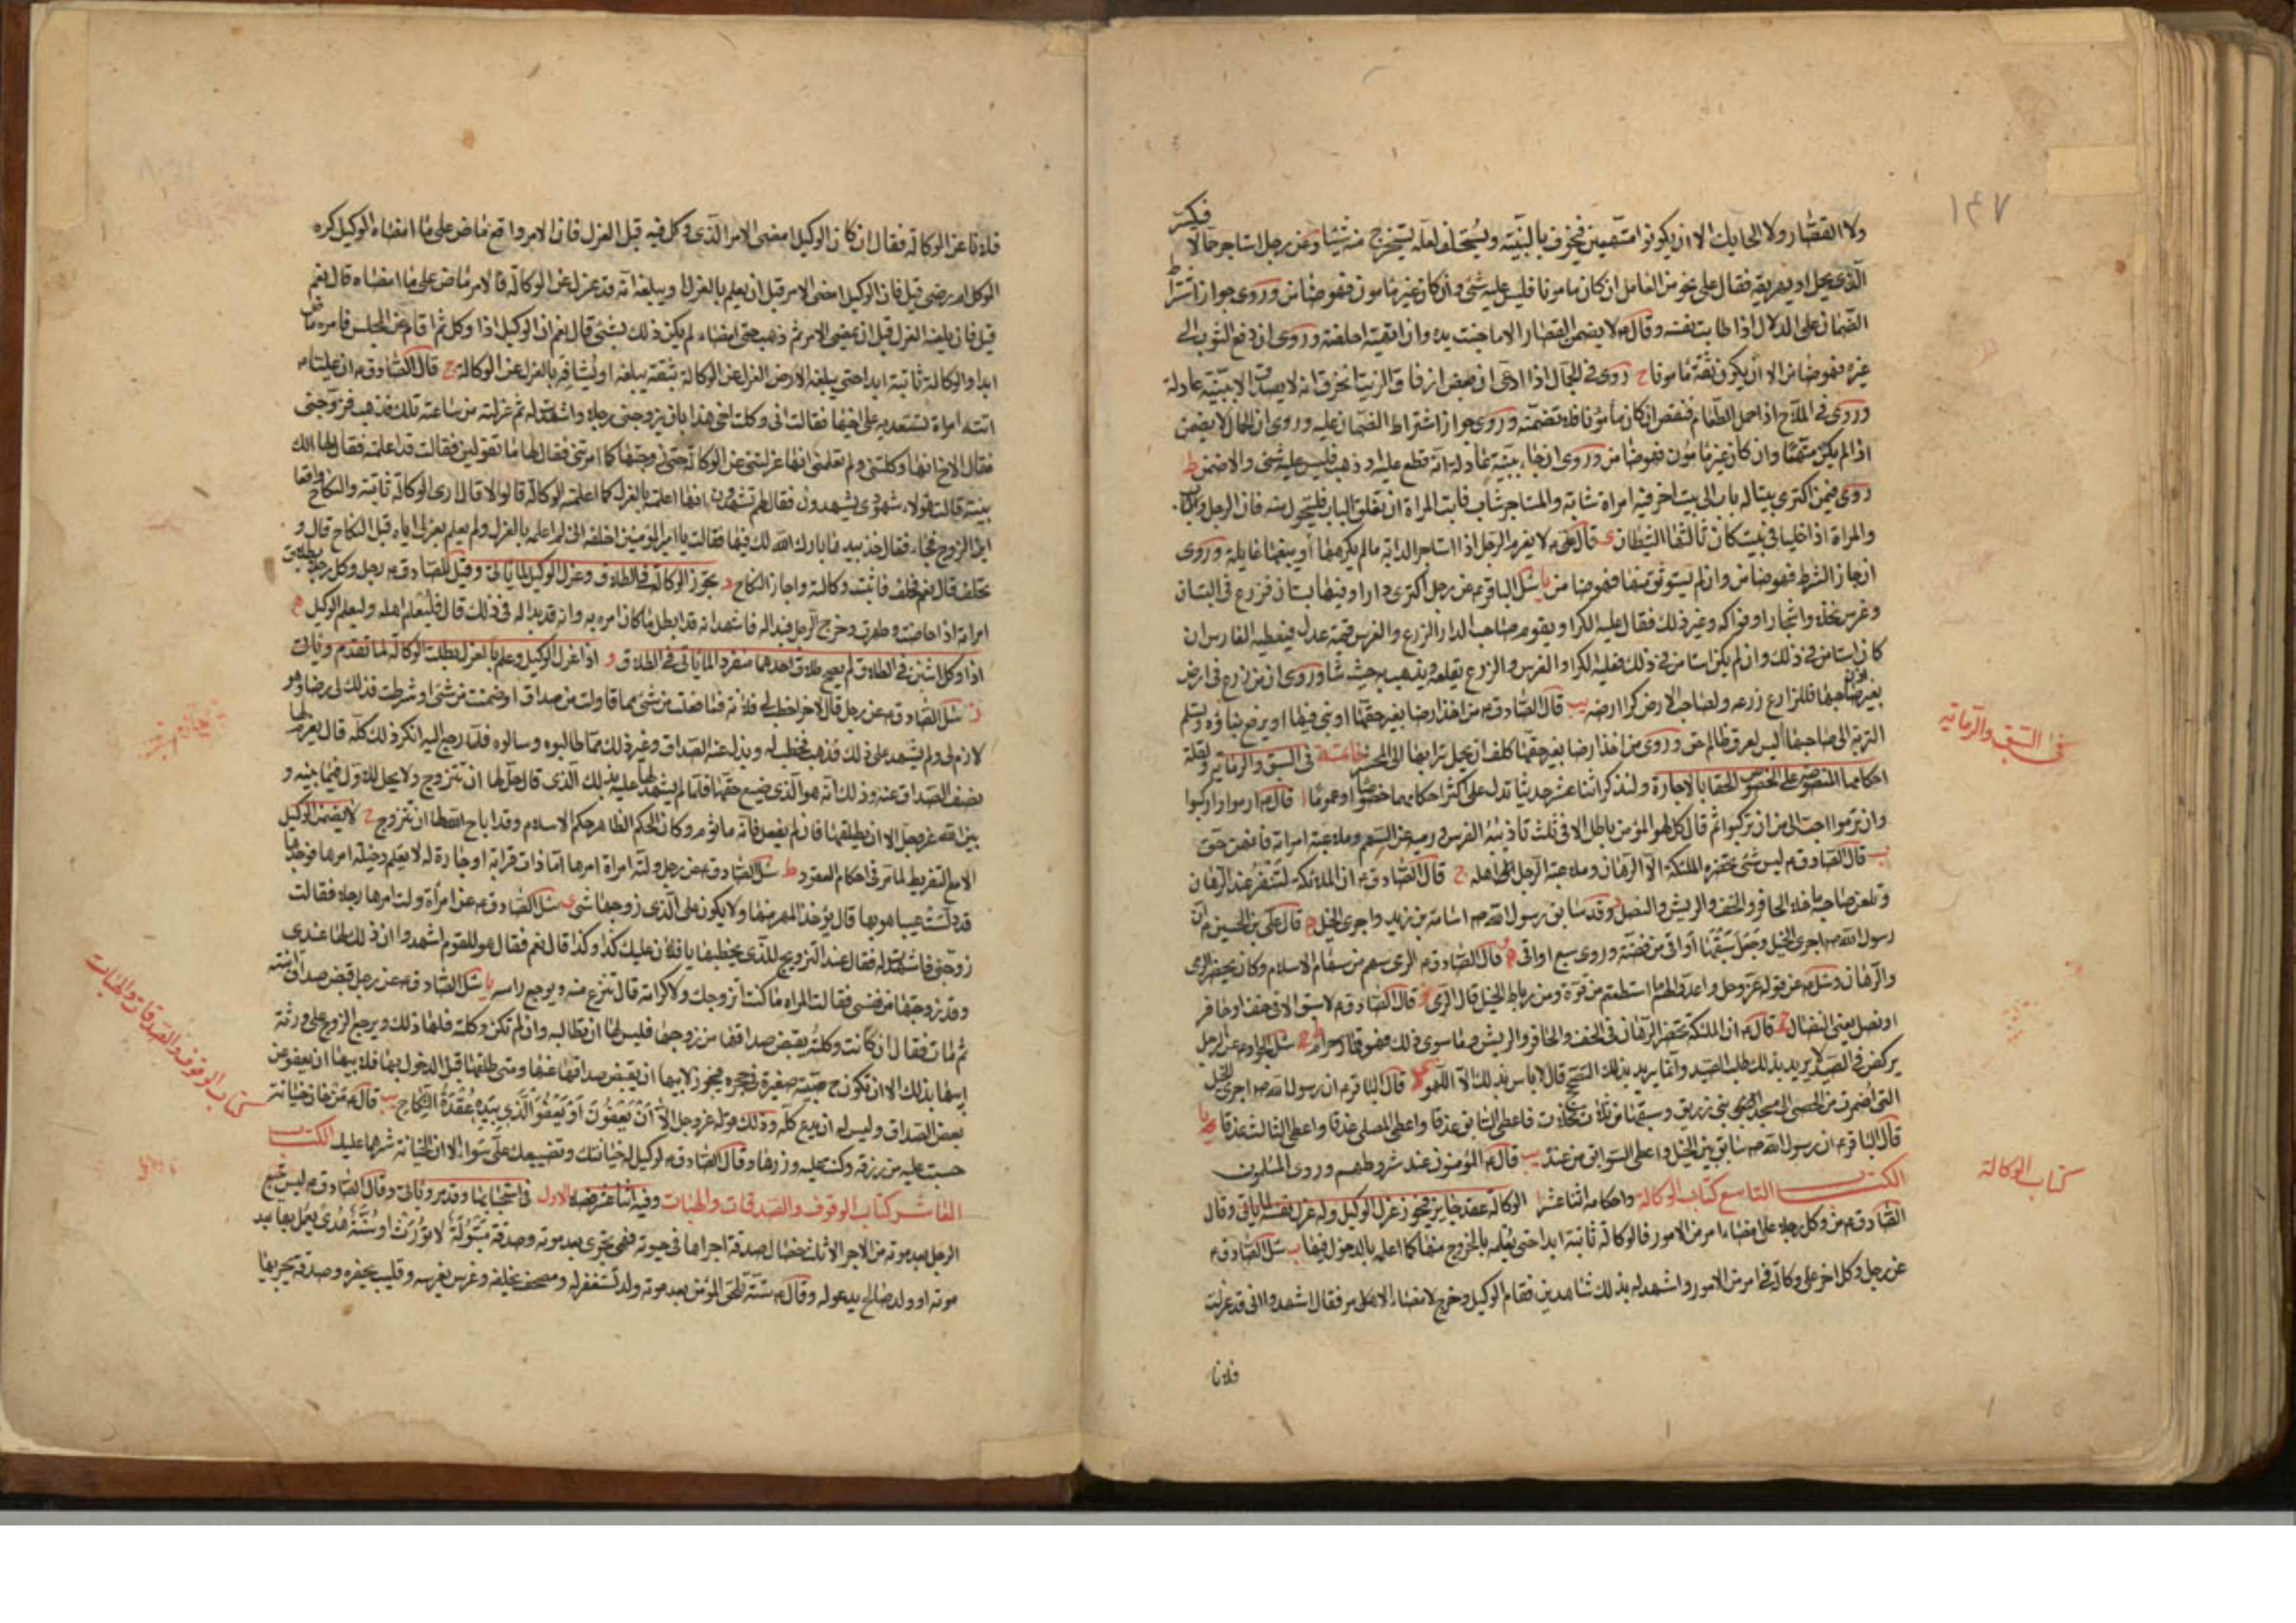 ١٤٧
ولا القصار ولا الحايك الا ان يكونوا متهمين فيخوف بالبينة ويستحلف لعله يستخرج منه شيئا وعن رجل استاجر جمالا فيكسر
الذي يحمل او يهريقه فقال على نحو من العامل ان كان مامونا فليس عليه شئ وان كان غير مامون فهو ضامن وروى جواز اشتراط
الضمان على الدلال اذا طابت نفسه وقال ع لا يضمن القصار الا ما جنت يده وان اتهمته احلفته وروى ان دفع الثوب الى
غيره فهو ضامن الا ان يكون ثقة مامونا ح روى في الجمال اذا ادعى ان بعض ازقاق الزيت انخرق انه لا يصدق الا ببينة عادلة
وروى في الملاح اذا حمل الطعام فنقص ان كان مأمونا فلا تضمنه وروى جواز اشتراط الضمان عليه وروى ان الجمال لا يضمن
اذا لم يكن متهما وان كان غير مامون فهو ضامن وروى ان جاء ببينة عادلة انه قطع عليه او ذهب فليس عليه شئ والا ضمن ط
روى فيمن اكترى بيتا له باب الى بيت اخر فيه امراة شابة والمستاجر شاب فابت المراة ان تغلق الباب فليتحول منه فان الرجل
والمراة اذا خليا في بيت كان ثالثهما الشيطان ى قال علي ع لا يغرم الرجل اذا استاجر الدابة ما لم يكرهها او يبغها غايلة وروى
ان جاز الشرط فهو ضامن وان لم يستوثق منها فهو ضامن يا سئل الباقر ع عن رجل اكترى دارا وفيها بستان فزرع في البستان
وغرس نخلا واشجارا وفواكه وغير ذلك فقال عليه الكرا ويقوم صاحب الدار الزرع والغرس قيمة عدل فيعطيه الغارس ان
كان استامن في ذلك وان لم يكن استامن في ذلك فعليه الكرا والغرس والزرع يقلعه ويذهب به حيث شا وروى ان من زرع في ارض
بغير اذن صاحبها فللزارع زرعه ولصاحب الارض كرا ارضه يب قال الصادق ع من اخذ ارضا بغير حقها او بنى فيها او يرفع بناؤه ويسلم
التربة الى صاحبها ليس لعرق ظالم حق وروى من اخذ ارضا بغير حقها كلف ان يحمل ترابها الى المحشر خاتمة في السبق والرماية ولقلة
احكامهما المنصوصة على الخصوص الحقا بالاجارة ولنذكر اثنا عشر حديثا تدل على اكثر احكامهما خصوصا او عموما ا قال ع ارموا واركبوا
وان ترموا احب الى من ان تركبوا ثم قال كل لهو المؤمن باطل الا في ثلث تاديبه الفرس ورميه عن القوس وملاعبته امراته فانهن حق
ب قال الصادق ع ليس شئ تحضره الملئكة الا الرهان وملاعبة الرجل اهله ج قال الصادق ع ان الملائكة لتنفر عند الرهان
وتلعن صاحبه ما خلا الحافر والخف والريش والنصل وقد سابق رسول الله ص اسامة بن زيد واجرى الخيل د قال علي بن الحسين ع ان
رسول الله ص اجرى الخيل وجعل سبقها اواقى من فضة وروى سبع اواقى ه قال الصادق ع الرمى سهم من سهام الاسلام وكان يحضر الرمى
والرهان وسئل ع عن قوله عز وجل واعدوا لهم ما استطعتم من قوة ومن رباط الخيل قال الرمى و قال الصادق ع لا سبق الا في خف او حافر
او نصل يعنى النضال ز قال ع ان الملئكة تحضر الرهان في الخف والحافر والريش وما سوى ذلك فهو قمار حرام ح سئل الجواد ع عن الرجل
يركض في الصيد لا يريد بذلك طلب الصيد وانما يريد بذلك التصحح قال لا باس بذلك الا اللهو ط قال الباقر ع ان رسول الله ص اجرى الخيل
التى اضمرت من الحصى الى مسجد بنى زريق وسبقها من ثلاث نخلات فاعطى السابق عذقا واعطى المصلى عذقا واعطى الثالث عذقا يا
قال الباقر ع ان رسول الله ص سابق بين الخيل واعطى السوابق من عنده يب قال ع المؤمنون عند شروطهم وروى المسلمون
الكتاب التاسع كتاب الوكالة واحكامه اثنا عشر ا الوكالة عقد جايز فيجوز عزل الوكيل وله عزل نفسه لما ياتى وقال
الصادق ع من وكل رجلا على امضاء امر من الامور فالوكالة ثابتة ابدا حتى يعلمه بالخروج منها كما اعلمه بالدخول فيها ب سئل الصادق ع
عن رجل وكل اخر على وكالة في امر من الامور واشهد له بذلك شاهدين فقام الوكيل وخرج لامضاء الامر فقال اشهدوا انى قد عزلت
فلانا
في السبق والرماية
كتاب الوكالة
فلانا عن الوكالة فقال ان كان الوكيل امضى الامر الذى وكل فيه قبل العزل فان الامر واقع ماض على ما امضاه الوكيل كره
الموكل ام رضى قيل فان الوكيل امضى الامر قبل ان يعلم بالعزل او يبلغه انه قد عزل عن الوكالة فالامر ماض على ما امضاه قال نعم
قيل فان بلغه العزل قبل ان يمضى الامر ثم ذهب حتى امضاه لم يكن ذلك بشئ قال نعم ان الوكيل اذا وكل ثم قام عن المجلس فامره ماض
ابدا والوكالة ثابتة ابدا حتى يبلغه العزل عن الوكالة بثقة يبلغه او يشافه بالعزل عن الوكالة ج قال الصادق ع ان عليا ع
اتته امراة تستعديه على اخيها فقالت انى وكلت اخى هذا بان يزوجنى رجلا واشهدت له ثم عزلته من ساعته تلك فذهب فزوجنى
فقال الاخ انها وكلتنى ولم تعلمنى انها عزلتنى عن الوكالة حتى زوجتها كما امرتنى فقال لها ما تقولين فقالت قد اعلمته فقال لها الك
بينة قالت هؤلاء شهودى يشهدون فقال لهم تشهدون انها اعلمته بالعزل كما اعلمته الوكالة قالوا لا قال ارى الوكالة ثابتة والنكاح واقعا
اين الزوج فجاء فقال خذ بيدها بارك الله لك فيها فقالت يا امير المؤمنين احلفه انى لم اعلمه بالعزل ولم يعلم بعزلى اياه قبل النكاح قال و
تحلف قال نعم فحلف فاثبت وكالته واجاز النكاح د تجوز الوكالة في الطلاق وعزل الوكيل لما ياتى وقيل للصادق ع رجل وكل رجلا بطلاق
امراته اذا حاضت وطهرت وخرج الرجل فبدا له فاشهد انه قد ابطل ما كان امره به وانه قد بدا له في ذلك قال فليعلم اهله وليعلم الوكيل ه
اذا وكل اثنين في الطلاق لم يصح طلاق احدهما منفردا لما ياتى في الطلاق و اذا عزل الوكيل وعلم بالعزل بطلت الوكالة لما تقدم وياتى
ز سئل الصادق ع عن رجل قال لاخر اخطب لى فلانة فما فعلت من شئ مما قاولت من صداق او ضمنت من شئ او شرطت فذلك لى رضا وهو
لازم لى ولم يشهد على ذلك فذهب فخطب له وبذل عنه الصداق وغير ذلك مما طالبوه وسالوه فلما رجع اليه انكر ذلك كله قال يغرم لها
نصف الصداق عنه وذلك انه هو الذى ضيع حقها فلما لم يشهد لها عليه بذلك الذى قال حل لها ان تتزوج ولا يحل للاول فيما بينه و
بين الله عز وجل الا ان يطلقها فان لم يفعل فانه ماثوم وكان الحكم الظاهر حكم الاسلام وقد اباح الله لها ان تتزوج ح لا يضمن الوكيل
الا مع التفريط لما مر في احكام العقود ط سئل الصادق ع عن رجل ولته امراة امرها اما ذات قرابة او جارة له لا يعلم دخيلة امرها فوجدها
قد دلست عيبا هو بها قال يؤخذ المهر منها ولا يكون على الذى زوجها شئ ى سئل الصادق ع عن امرأة ولت امرها رجلا فقالت
زوجنى فلانا فقال عند التزويج للذى يخطبها يا فلان عليك كذا وكذا قال نعم فقال هو للقوم اشهدوا ان ذلك لها عندى
وقد زوجتها من نفسى فقالت المراة ما كنت اتزوجك ولا كرامة قال تنزع منه ويوجع راسه يا سئل الصادق ع عن رجل قبض صداق ابنته
ثم مات فقال ان كانت وكلته بقبض صداقها من زوجها فليس لها ان تطالبه وان لم تكن وكلته فلها ذلك ويرجع الزوج على ورثة
ابيها بذلك الا ان تكون ح صبية صغيرة في حجره فيجوز لابيها ان يقبض صداقها عنها ومتى طلقها قبل الدخول بها فلابيها ان يعفو عن
بعض الصداق وليس له ان يدع كله وذلك قوله عز وجل الا ان يعفون او يعفو الذى بيده عقدة النكاح يب قال ع من خان خيانة
حسبت عليه من رزقه وكتب عليه وزرها وقال الصادق ع لوكيل له خيانتك وتضييعك على سوا الا ان الخيانة شرهما عليك الكتاب
العاشر كتاب الوقوف والصدقات والهبات وفيه اثنا عشر فصلا الاول في استحبابها وقد مر وياتى وقال الصادق ع ليس يتبع
الرجل بعد موته من الاجر الا ثلث خصال صدقة اجراها في حيوته فهى تجرى بعد موته وصدقة مبتولة لا تورث او سنة هدى يعمل بها بعد
موته او ولد صالح يدعو له وقال ع ستة تلحق المؤمن بعد موته ولد يستغفر له ومصحف يخلفه وغرس يغرسه وقليب يحفره وصدقة يجريها
كتاب الوقوف والصدقات والهبات